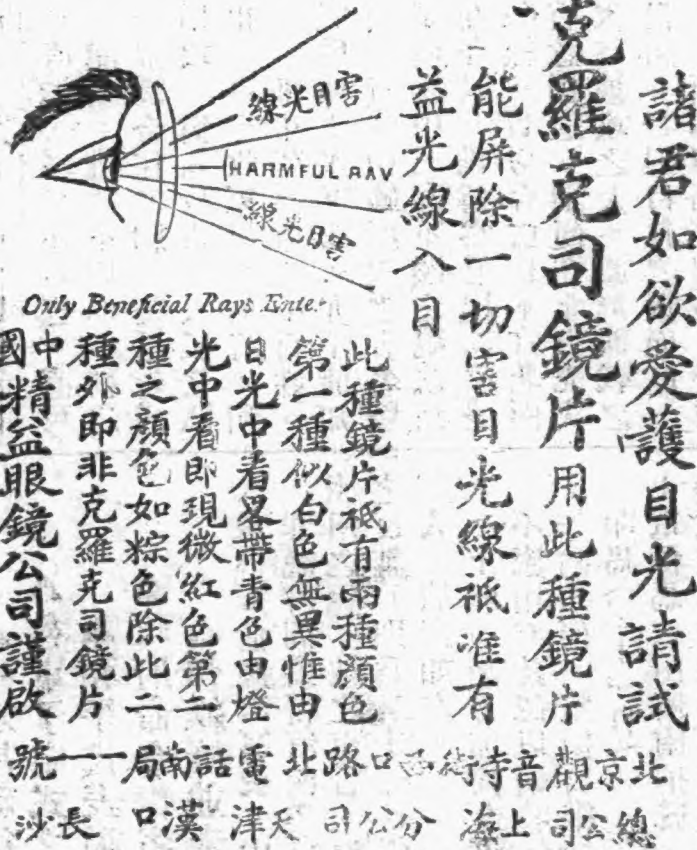 諸君如欲愛護目光請試
克羅克司鏡片用此種鏡片
能屏除一切害目光線祗准有
益光線入目
害目光線
HARMFUL RAY
害目光線
Only Beneficial Rays Enter
此種鏡片祗有兩種顏色
第一種似白色無異惟由
日光中看畧帶青色由燈
光中看即現微紅色第二
種之顏色如粽色除此二
種外即非克羅克司鏡片
中國精益眼鏡公司謹啟
北京觀音寺街西口路北電話南局一一號
總公司上海分公司天津漢口長沙